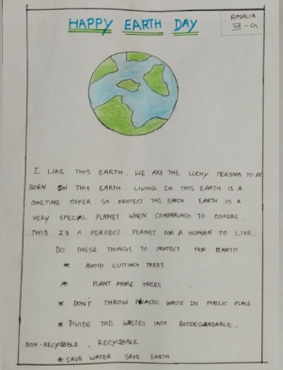 HAPPY EARTH DAY
RMALIA
VI - G
I LIKE THIS EARTH. WE ARE THE LUCKY PERSONS TO BE
BORN ON THIS EARTH. LIVING IN THIS EARTH IS A
ONETIME OFFER. SO PROTECT THE EARTH. EARTH IS A
VERY SPECIAL PLANET WHEN COMPARING TO OTHERS.
THIS IS A PERFECT PLANET FOR A HUMAN TO LIVE.
DO THESE THINGS TO PROTECT OUR EARTH
* AVOID CUTTING TREES
* PLANT MORE TREES
* DON'T THROW PLASTIC WASTE IN PUBLIC PLACE
* DIVIDE THE WASTES INTO BIODEGRADABLE,
NON-RECYCABLE, RECYCABLE.
* SAVE WATER SAVE EARTH